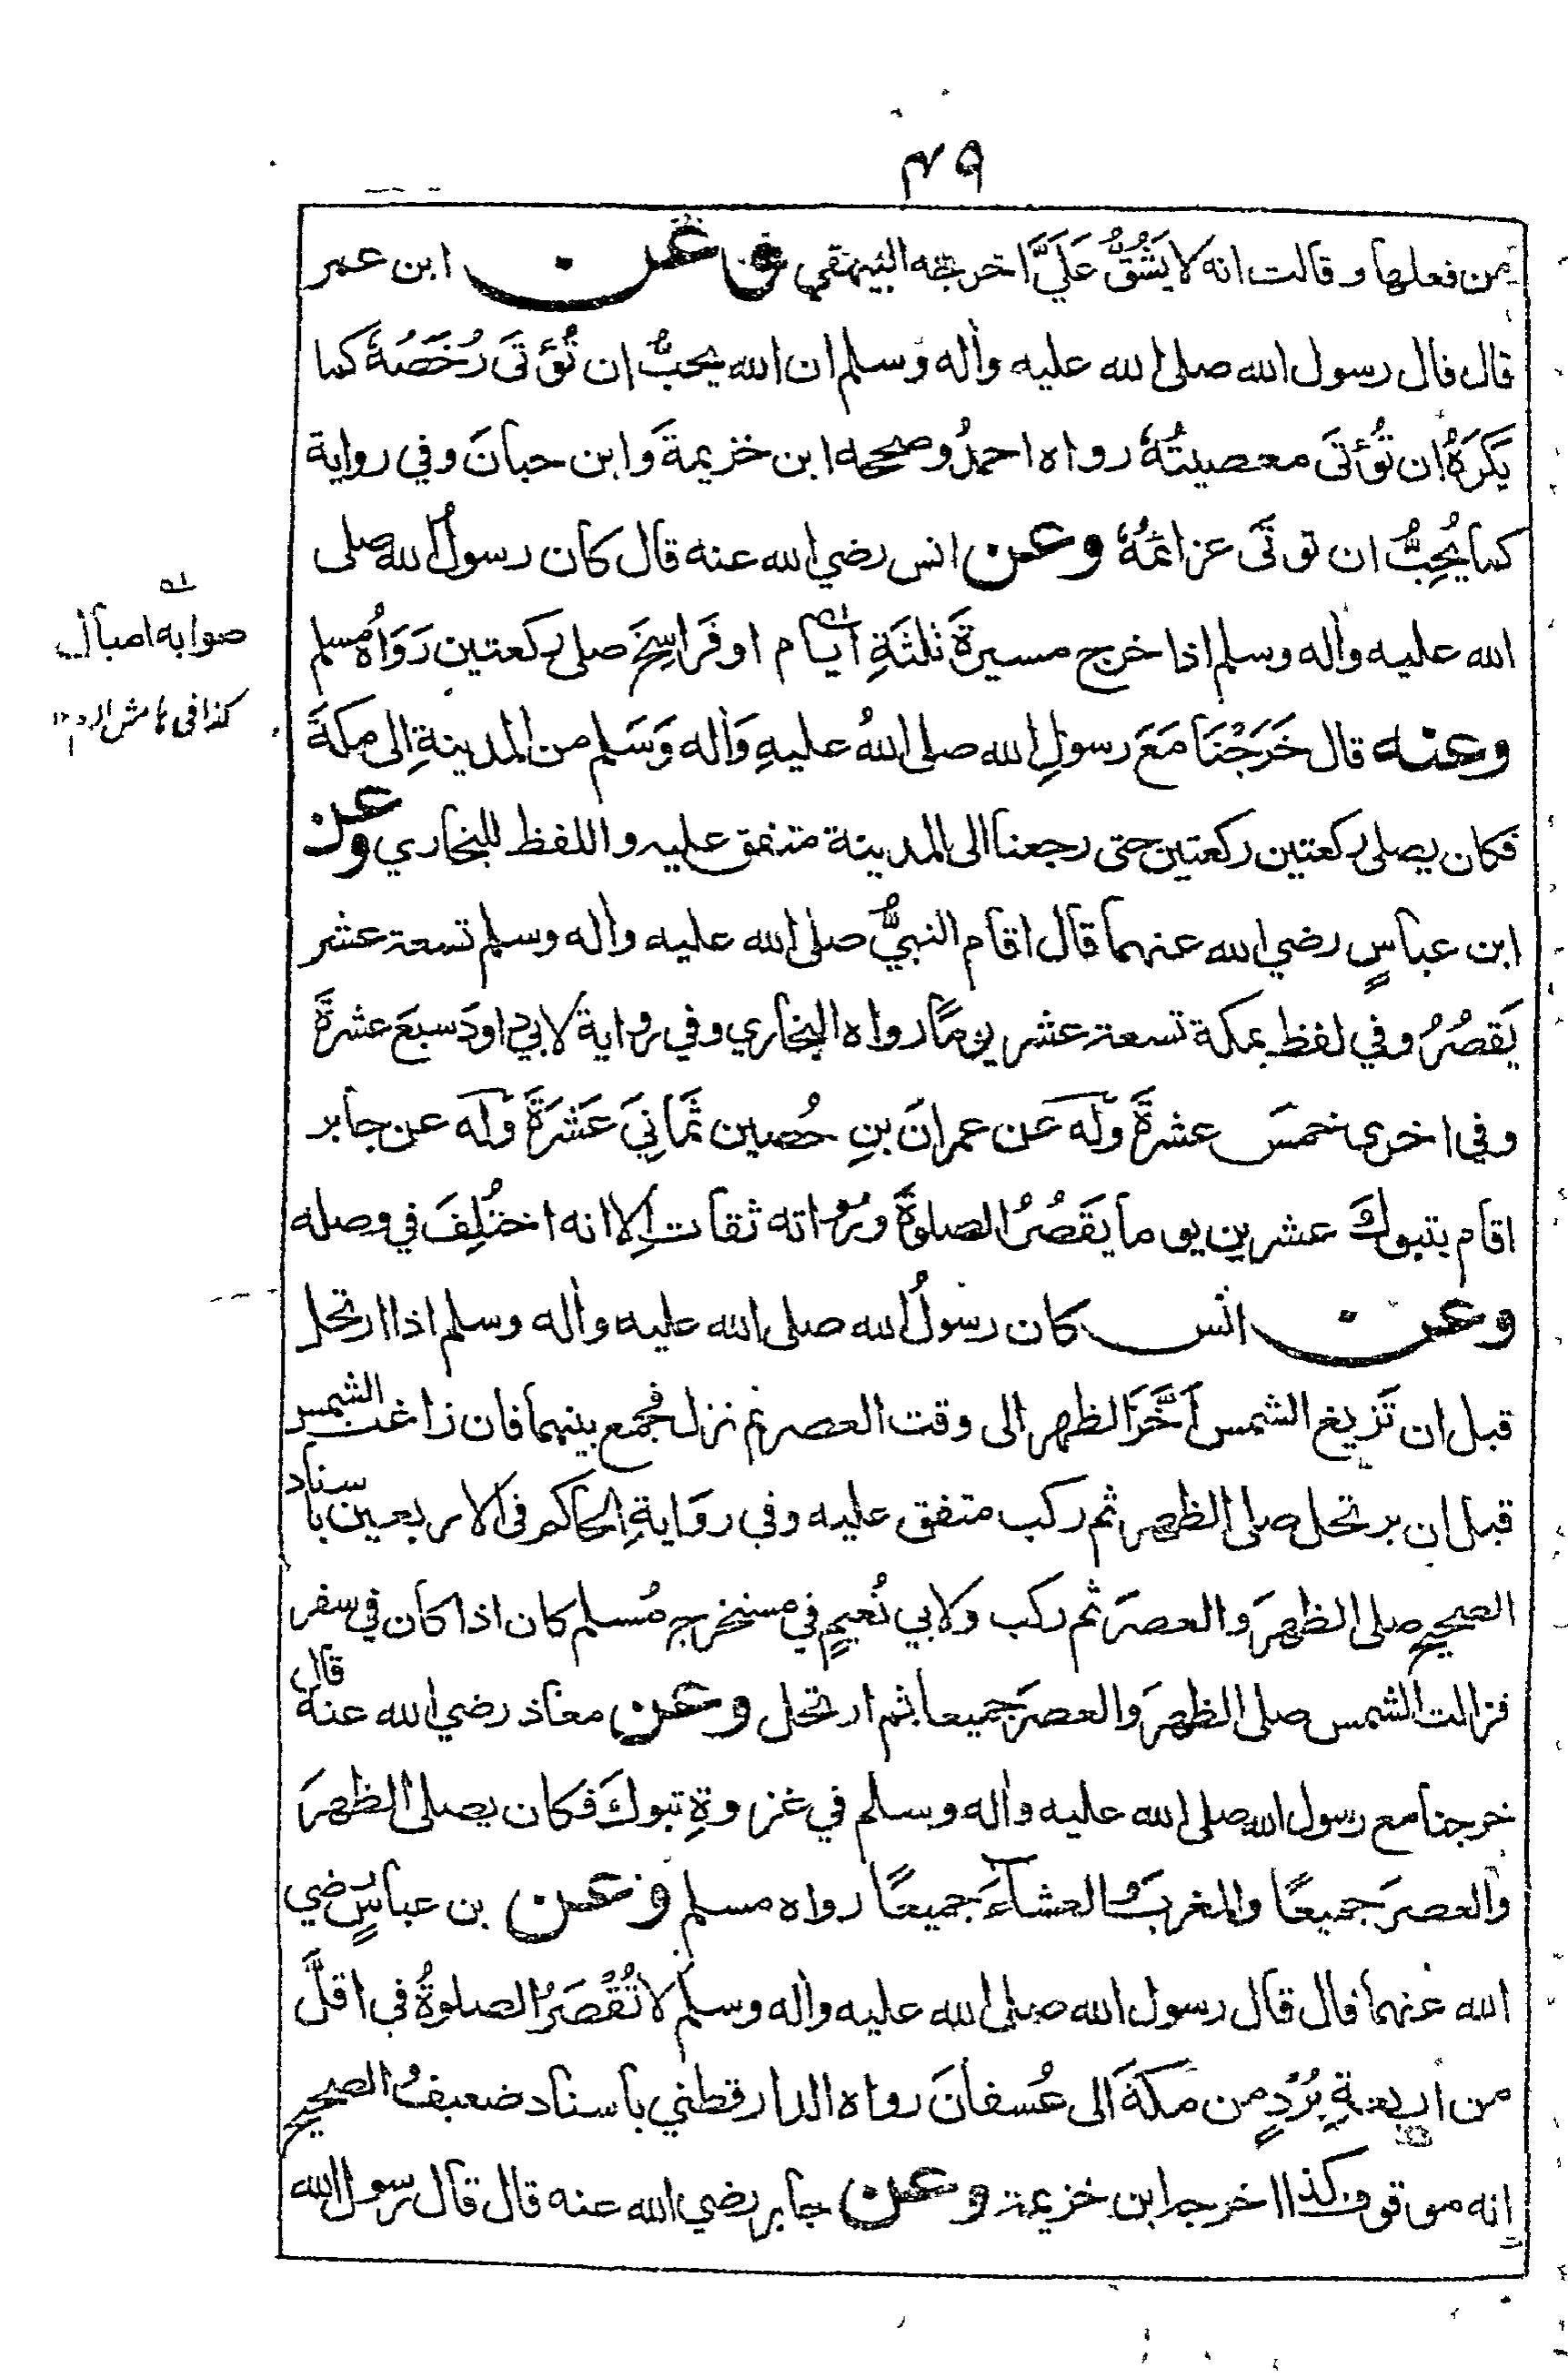 ٤٩
من فعلها وقالت انه لا يَشُقُّ عَلَيَّ اخرجه البيهقي وعن ابن عمر
قال قال رسول الله صلى الله عليه واٰله وسلم ان الله يحبُّ ان تُؤتَى رُخَصُهُ كما
يَكرَهُ ان تُؤتَى معصيتُهُ رواه احمدُ وصححه ابن خزيمةَ وابن حبانَ وفي رواية
كما يُحِبُّ ان توتَى عزائمُهُ وعن انس رضي الله عنه قال كان رسولُ الله صلى
الله عليه واٰله وسلم اذا خرج مسيرةَ ثلثَةِ ايام او فَراسِخَ صلى ركعتين رَوَاهُ مسلم
وعنه قال خَرَجْنَا مَعَ رسولِ الله صلى اللهُ عليهِ وَاٰله وَسَلم من المدينةِ الى مكةَ
فكان يصلى ركعتين ركعتين حتى رجعنا الى المدينة متفق عليه واللفظ للبخاري وعن
ابن عباسٍ رضي الله عنهما قال اقام النبيُّ صلى الله عليه واٰله وسلم تسعة عشر
يَقصُرُ وفي لفظ بمكة تسعة عشر يومًا رواه البخاري وفي رواية لابي داودَ سبعَ عشرةَ
وفي اخرى خمسَ عشرةَ وله عن عمرانَ بنِ حُصين ثَمانِيَ عَشَرَةَ وله عن جابر
اقام بتبوكَ عشرين يوما يَقصُرُ الصلوةَ ورُواته ثقات اِلا انه اختُلِفَ في وصله
وعن انس كان رسولُ الله صلى الله عليه واٰله وسلم اذا ارتحل
قبل ان تَزيغ الشمس اَخَّرَ الظهر الى وقت العصر ثم نزل فجمع بينهما فان زاغت الشمس
قبل ان يرتحل صلى الظهر ثم ركب متفق عليه وفي روَايةِ الحاكم فى الاربعين باسناد
الصحيح صلى الظهرَ والعصرَ ثم ركب ولابي نُعيمٍ في مستخرج مُسلم كان اذا كان في سفر
فزالت الشمس صلى الظهرَ والعصرَ جميعا ثم ارتحل وعن معاذ رضي الله عنه قال
خرجنا مع رسول الله صلى الله عليه واٰله وسلم في غزوةِ تبوكَ فكان يصلى الظهرَ
والعصرَ جميعًا والمغربَ والعشآءَ جميعًا رواه مسلم وعن بن عباسٍ رضي
الله عنهما قال قال رسول الله صلى الله عليه واٰله وسلم لا تُقْصَرُ الصلوةُ في اقلَّ
من اربعةِ بُرُدٍ من مكةَ الى عُسفانَ رواه الدارقطني باسناد ضعيف والصحيح
اِنه موقوف كذا اخرجه ابن خزيمة وعن جابر رضي الله عنه قال قال رسول الله
صوابه اميال
كذا فى هامش الام ١٢